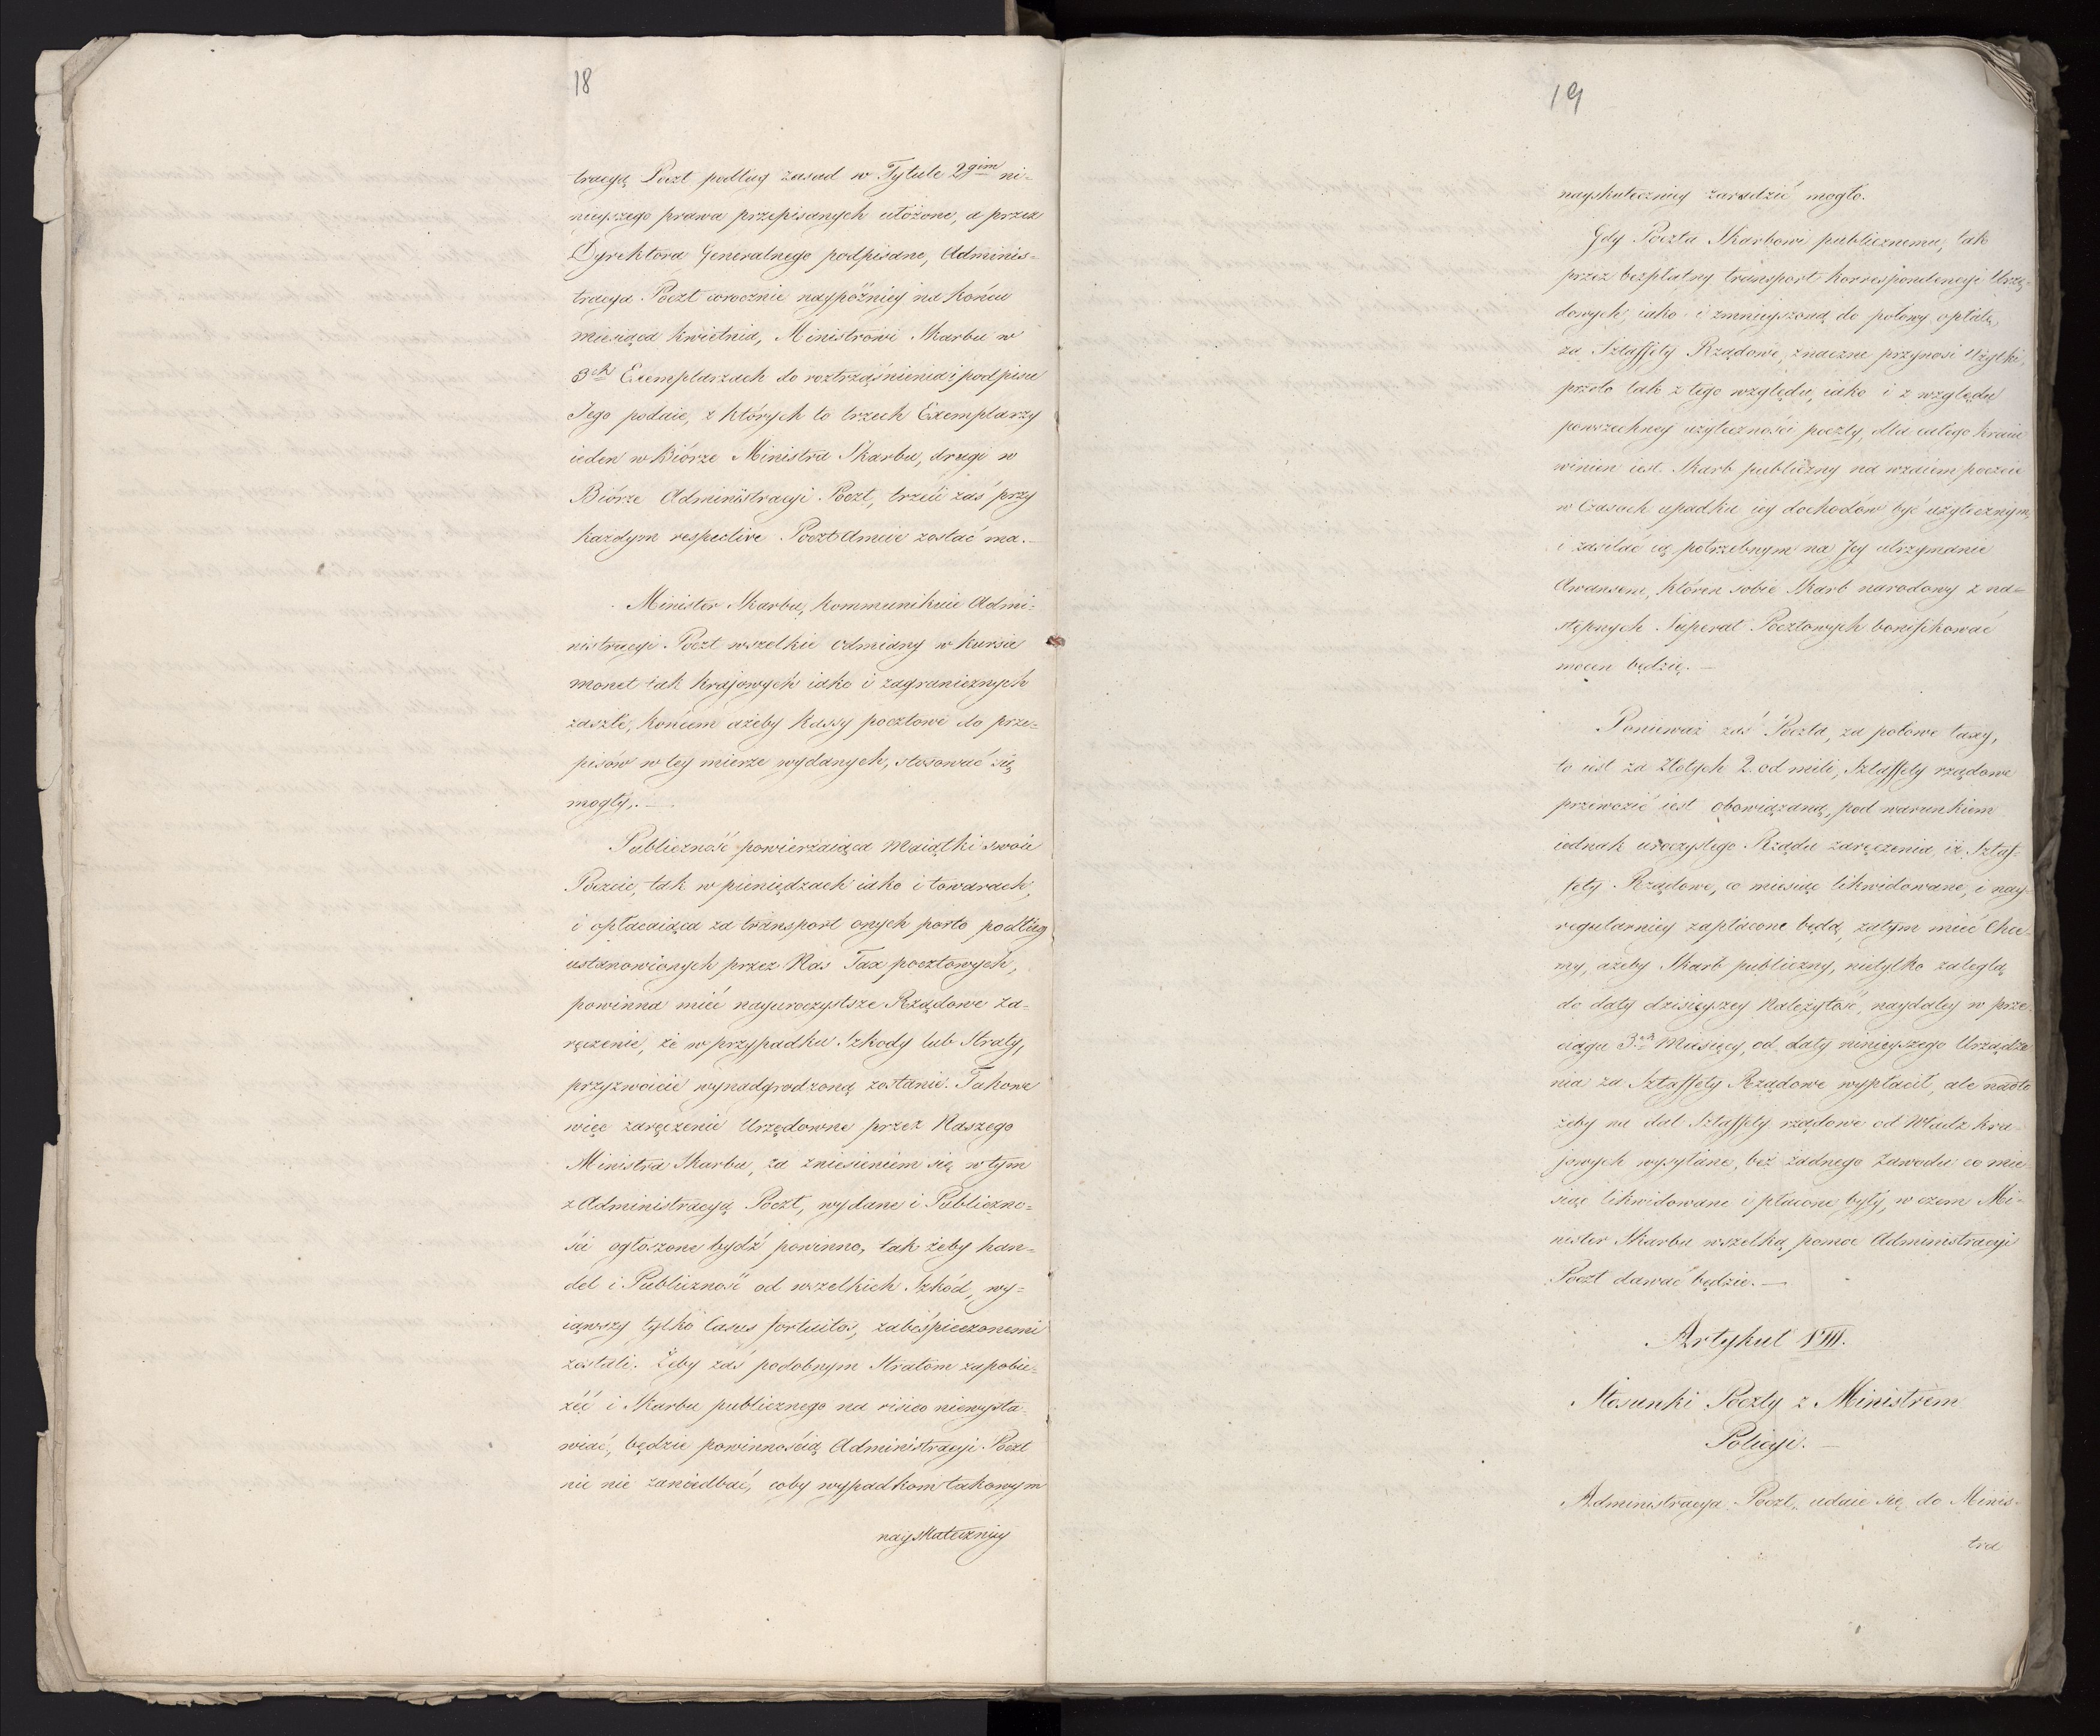 18
tracyą Poczt podług zasad w Tytule 2gim ni=
nieyszego prawa przepisanych ułożone, a przez
Dyrektora Generalnego podpisane, Adminis=
tracya Poczt corocznie naypóźniey na końcu
miesiąca Kwietnia, Ministrowi Skarbu w
3ch Exemplarzach do roztrząśnienia i podpisu
Jego podaie, z których to trzech Exemplarzy
ieden w Biórze Ministra Skarbu, drugi w
Biórze Administracyi Poczt, trzeci zaś przy
każdym respective Pocztamcie zostać ma.—
Minister Skarbu, kommunikuie Admi=
nistracyi Poczt wszelkie odmiany w kursie
monet tak krajowych iako i zagranicznych
zaszłe, końcem ażeby Kassy pocztowe do prze=
pisów w tey mierze wydanych, stosować się
mogły.—
Publiczność powierzaiąca Maiątki swoie
Poczcie, tak w pieniądzach iako i towarach,
i opłacaiąca za transport onych porto podług
ustanowionych przez Nas Tax pocztowych,
powinna mieć nayuroczystsze Rządowe za=
ręczenie, że w przypadku Szkody lub Straty,
przyzwoicie wynadgrodzoną zostanie. Takowe
więc zaręczenie Urzędowne przez Naszego
Ministra Skarbu, za zniesieniem się w tym
z Administracyą Poczt, wydane i Publiczno=
ści ogłoszone bydź powinno, tak żeby han=
del i Publiczność od wszelkich Szkód, wy=
iąwszy tylko Casus fortuitos, zabespieczonemi
zostali. Żeby zaś podobnym Stratom zapobie=
żéć i Skarbu publicznego na risico niewysta=
wiać, będzie powinnością Administracyi Poczt
nic nie zaniedbać, coby wypadkom takowym
nayskuteczniey
19
nayskuteczniey zaradzić mogło.
Gdy Poczta Skarbowi publicznemu, tak
przez bezpłatny transport Korrespondencyi Urzę=
dowych, iako i zmnieyszoną do połowy opłatę,
za Sztaffety Rządowe, znaczne przynosi użytki,
przeto tak z tego względu, iako i z względu
powszechney użyteczności poczty, dla całego kraiu
winien iest Skarb publiczny na wzaiem poczcie
w Czasach upadku iey dochodów być użytecznym,
i zasilać ią potrzebnym na Jey utrzymanie
Awansem, któren sobie Skarb narodowy z na=
stępnych Superat Pocztowych bonifikować
mocen będzie.—
Ponieważ zaś Poczta, za połowę taxy,
to iest za Złotych 2. od mili, Sztaffety rządowe
przewozić iest obowiązaną, pod warunkiem
iednak uroczystego Rządu zaręczenia, iż Sztaf=
fety Rządowe, co miesiąc likwidowane, i nay=
regularniey zapłacone będą, zatym mieć Chce=
my, ażeby Skarb publiczny, nietylko zaległą
do daty dzisieyszey Należytość, naydaley w prze=
ciągu 3ch Miesięcy, od daty ninieyszego Urządze
nia za Sztaffety Rządowe wypłacił, ale nadto
żeby na dal Sztaffety rządowe od Władz kra=
jowych wysyłane, bez żadnego Zawodu co mie=
siąc likwidowane i płacone były, w czem Mi=
nister Skarbu wszelką pomoc Administracyi
Poczt dawać będzie.—
Artykuł VIII.
Stosunki Poczty z Ministrem
Policyi.—
Administracya Poczt, udaie się do Minis=
tra